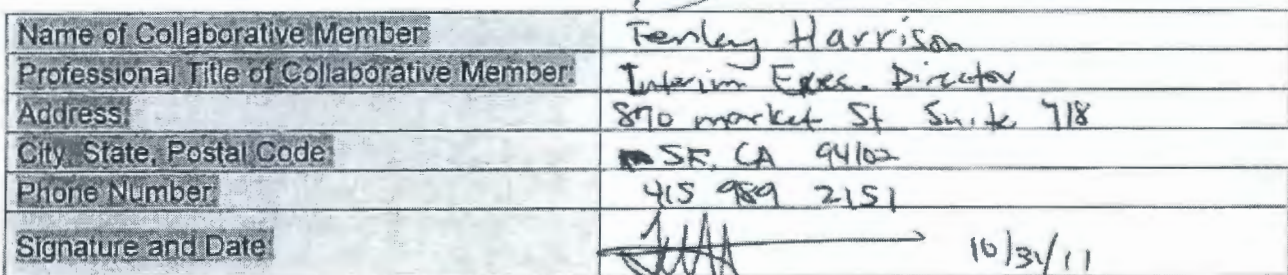 Name of Collaborative Member: Fenley Harrison
Professional Title of Collaborative Member: Interim Exec. Director
Address: 870 market St Suite 718
City, State, Postal Code: SF, CA 94102
Phone Number: 415 989 2151
Signature and Date: 10/31/11